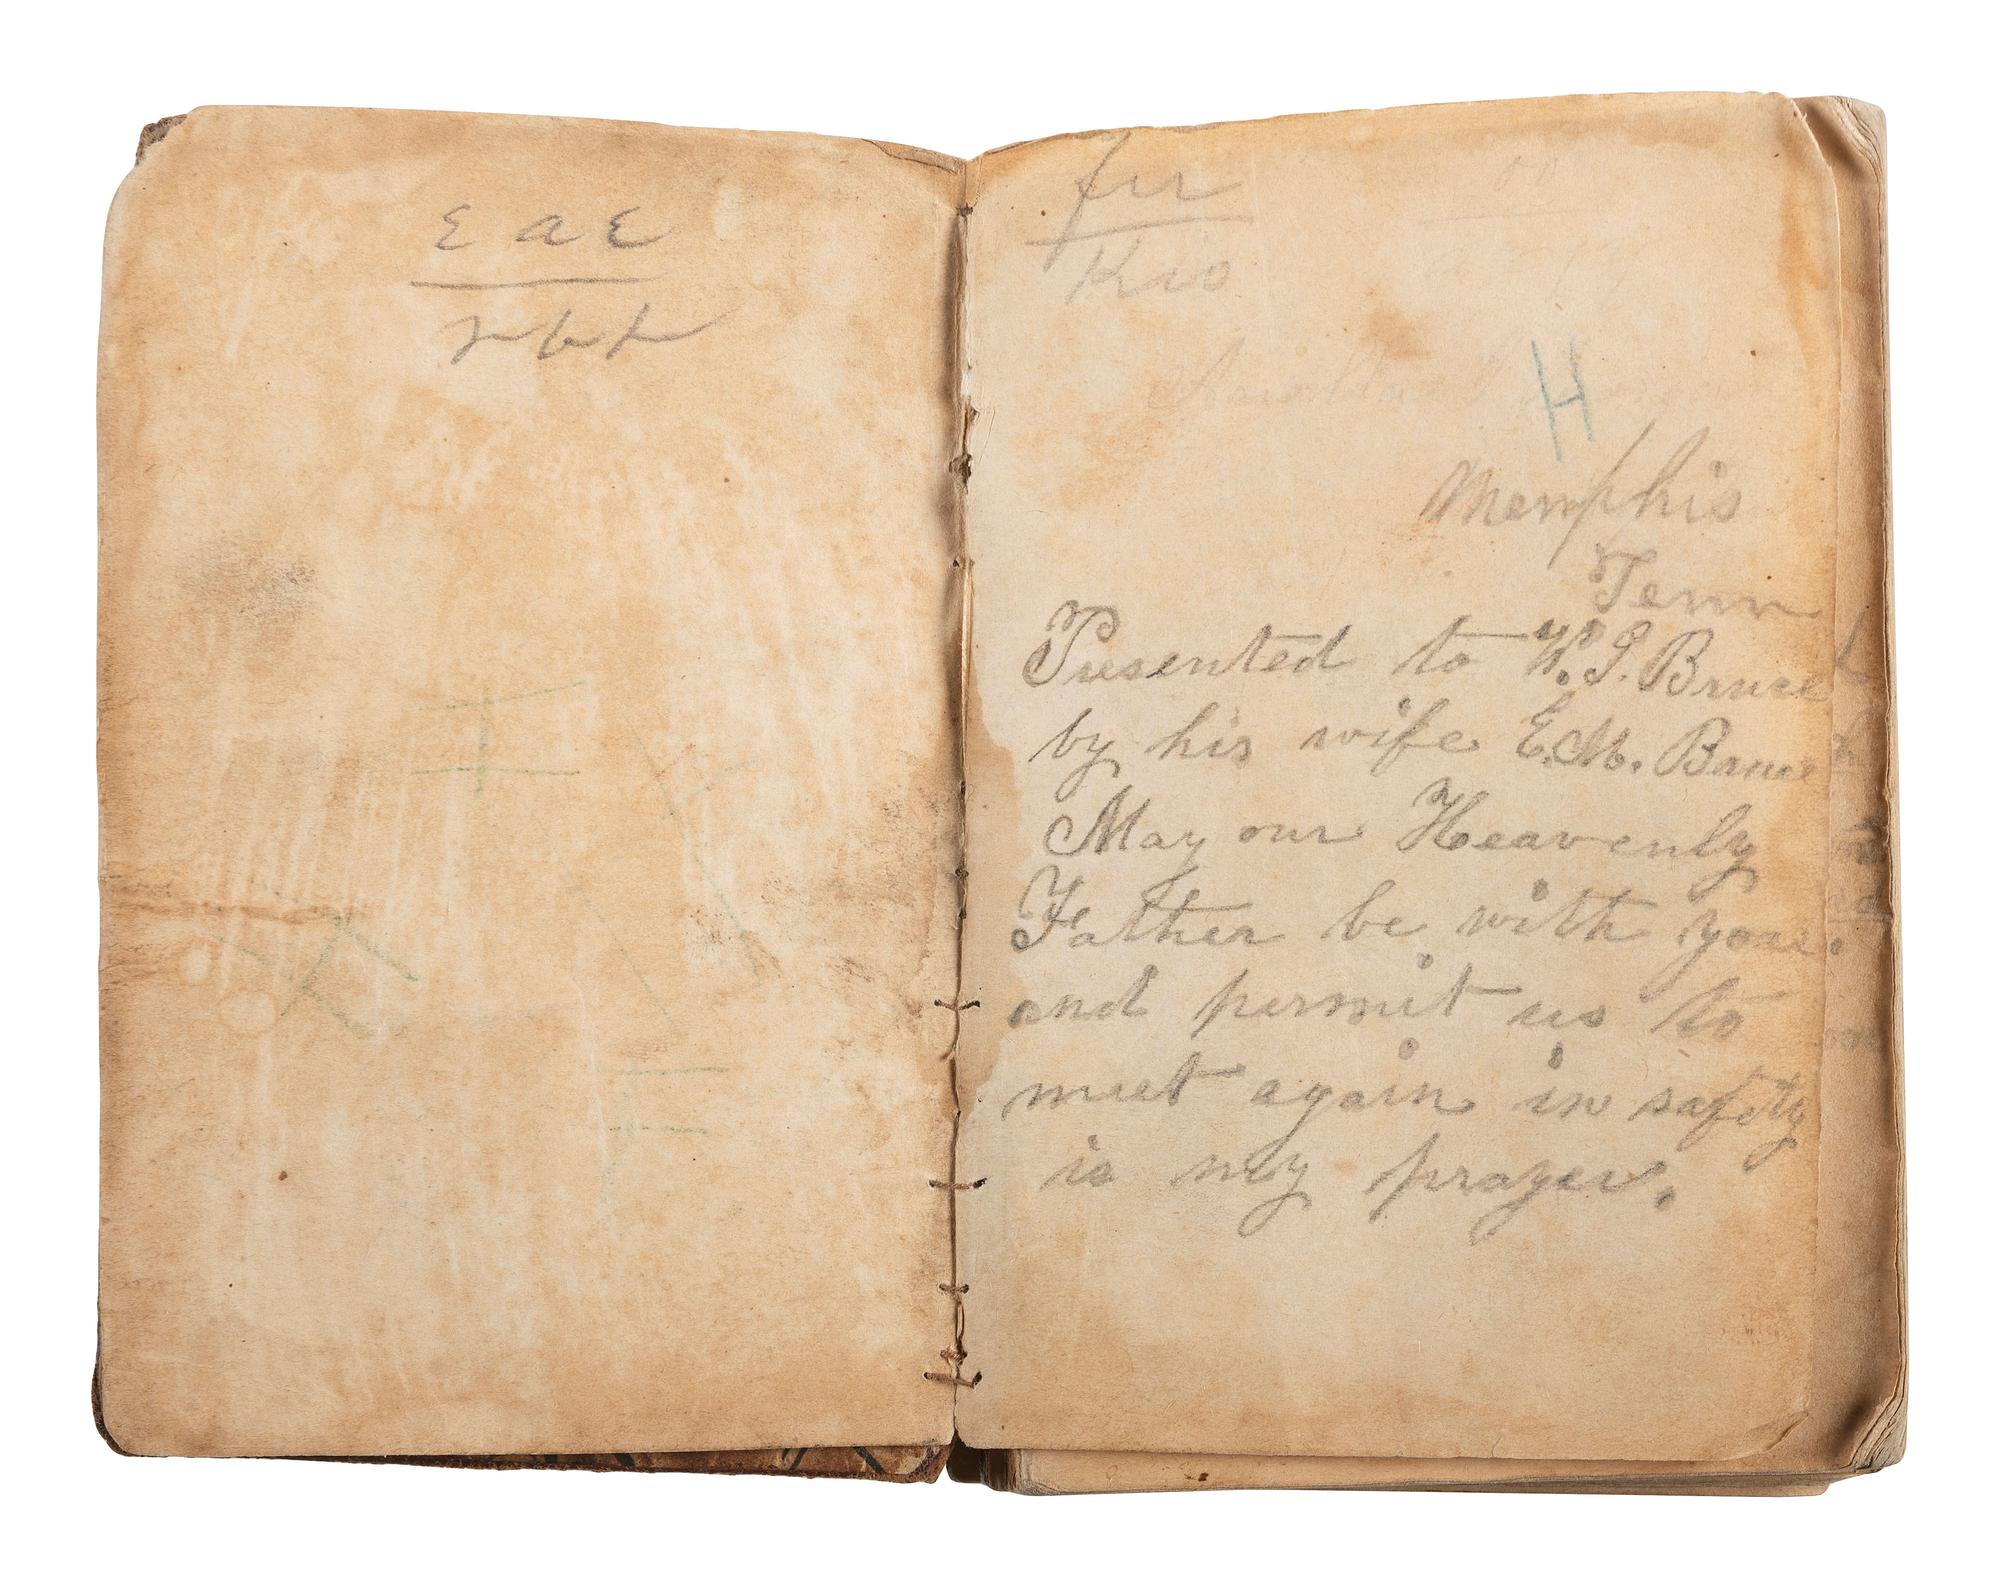 ε a ε
fur
Kio
H
Memphis
Tenn
Presented to W. J. Bruce
by his wife E. M. Bruce
May our Heavenly
Father be with you
and permit us to
meet again in safety
is my prayer.